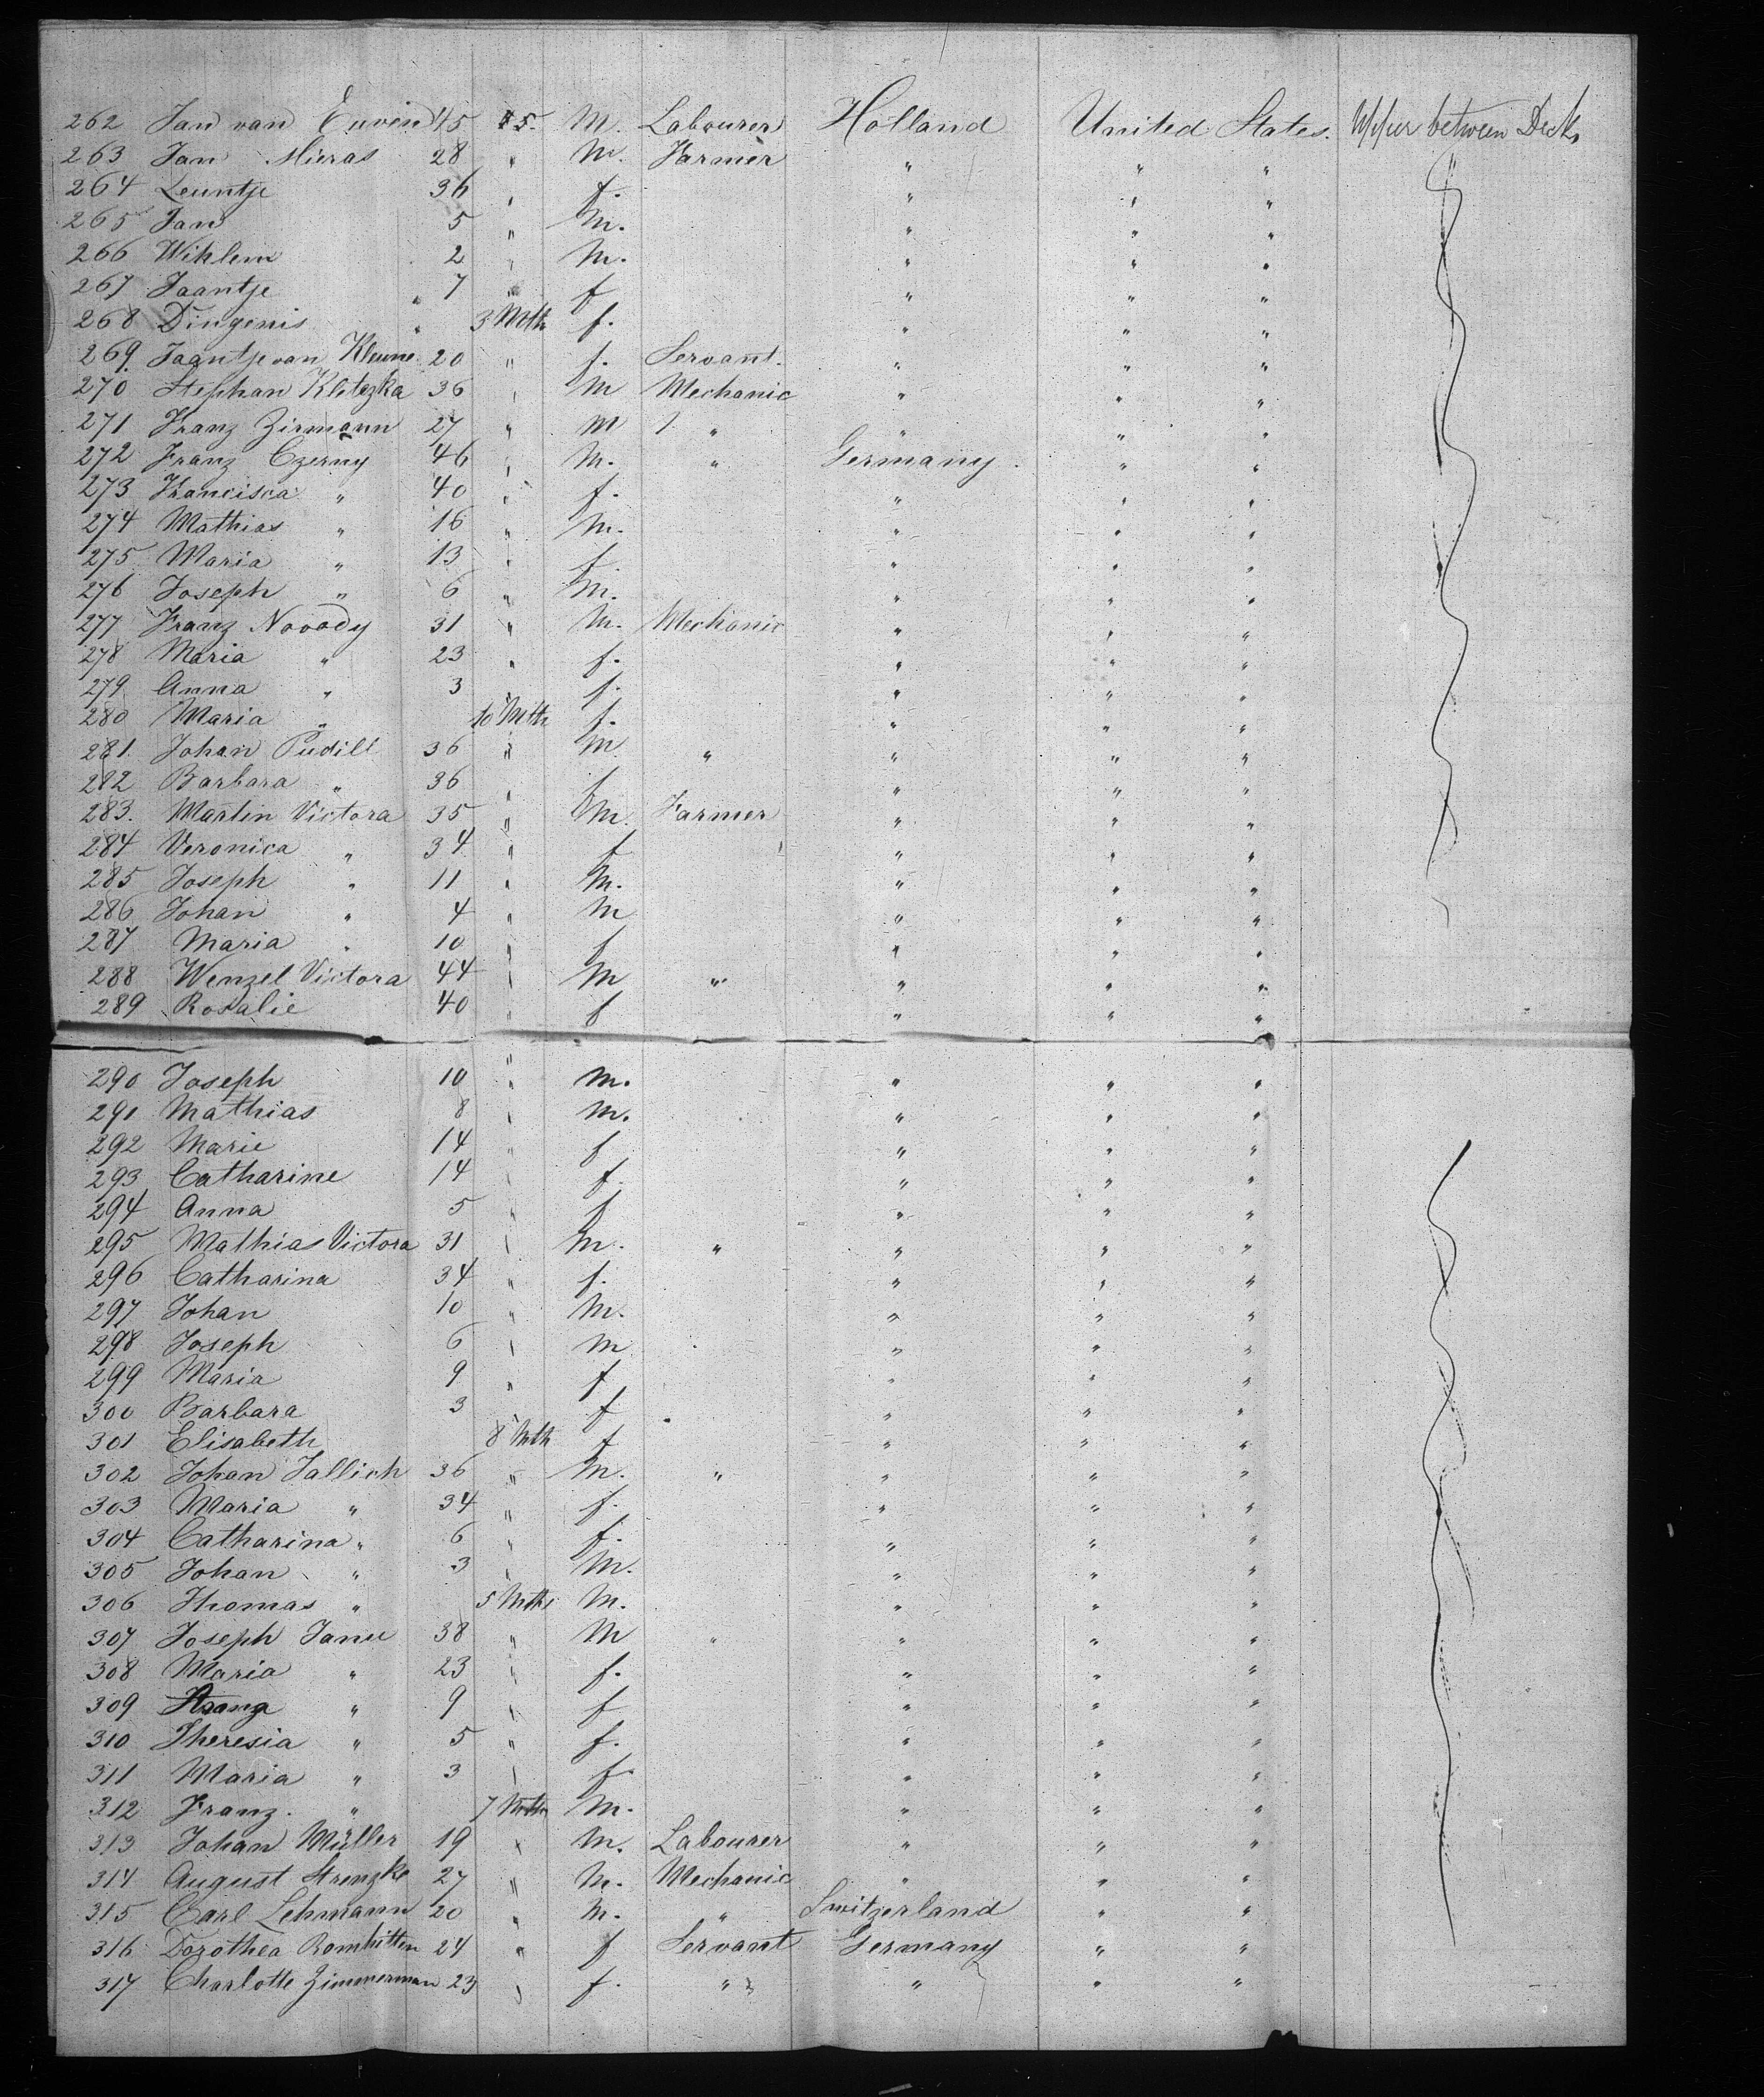 262 Jan van 45 5. M. Labourer Holland United States. Upper between Decks
263 Jan Mieras 28 " M. Farmer " " "
264 Leuntje 36 " f. " " "
265 Jan 5 " M. " " "
266 Wihlem 2 " M. " " "
267 Jaantje " 7 " f " " "
268 Dingenis " 3 Mth f. " " "
269. Jaantje van 20 " f. Servant. " " "
270 Stephan Kletezka 36 " M Mechanic " " "
271 Franz Zirmann 27 " M " " " "
272 Franz Czerny 46 " M. " Germany. " "
273 Francisca " 40 " f. " " "
274 Mathias " 16 " M. " " "
275 Maria " 13 " f. " " "
276 Joseph " 6 " M. " " "
277 Franz Novody 31 " M. Mechanic " " "
278 Maria " 23 " f. " " "
279 Anna " 3 " f. " " "
280 Maria " 10 Mth f. " " "
281. Johan Pudill 36 " M " " " "
282 Barbara " 36 " f " " "
283. Martin Victora 35 " M. Farmer " " "
284 Veronica " 34 " f " " "
285 Joseph " 11 " M. " " "
286 Johan " 4 " M " " "
287 Maria " 10 " f " " "
288 Wenzel Victora 44 " M " " " "
289 Rosalie 40 " f " " "
290 Joseph 10 " M. " " "
291 Mathias 8 " M. " " "
292 Marie 14 " f " " "
293 Catharine 14 " f. " " "
294 Anna 5 " f " " "
295 Mathias Victora 31 " M. " " " "
296 Catharina 34 " f. " " "
297 Johan 10 " M. " " "
298 Joseph 6 " M " " "
299 Maria 9 " f " " "
300 Barbara 3 " f " " "
301 Elisabeth 8 Mth f " " "
302 Johan Jallich 36 " M. " " " "
303 Maria " 34 " f. " " "
304 Catharina " 6 " f. " " "
305 Johan " 3 " M. " " "
306 Thomas " 5 Mths M. " " "
307 Joseph Janu 38 " M " " " "
308 Maria " 23 " f. " " "
309 " 9 " f " " "
310 Theresia " 5 " f. " " "
311 Maria " 3 " f " " "
312 Franz. " 7 Mth M. " " "
313 Johan Müller 19 " M. Labourer " " "
314 August Strenzke 27 " M. Mechanic " " "
315 Carl Lehmann 20 " M. " Switzerland " "
316 Dorothea 24 " f Servant Germany " "
317 Charlotte Zimmerman 23 " f. " " " "